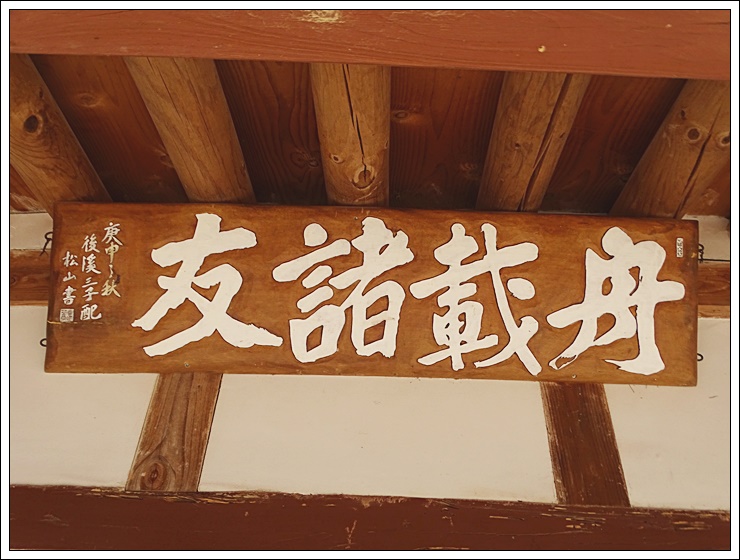 舟載諸友
庚申之秋
後溪三子配
松山書